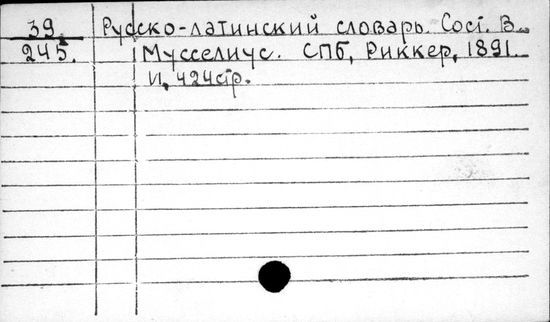 39. Русско-латинский словарь. Сост. В.
245. Мусселиус. СПб, Риккер, 1891.
II, 424стр.